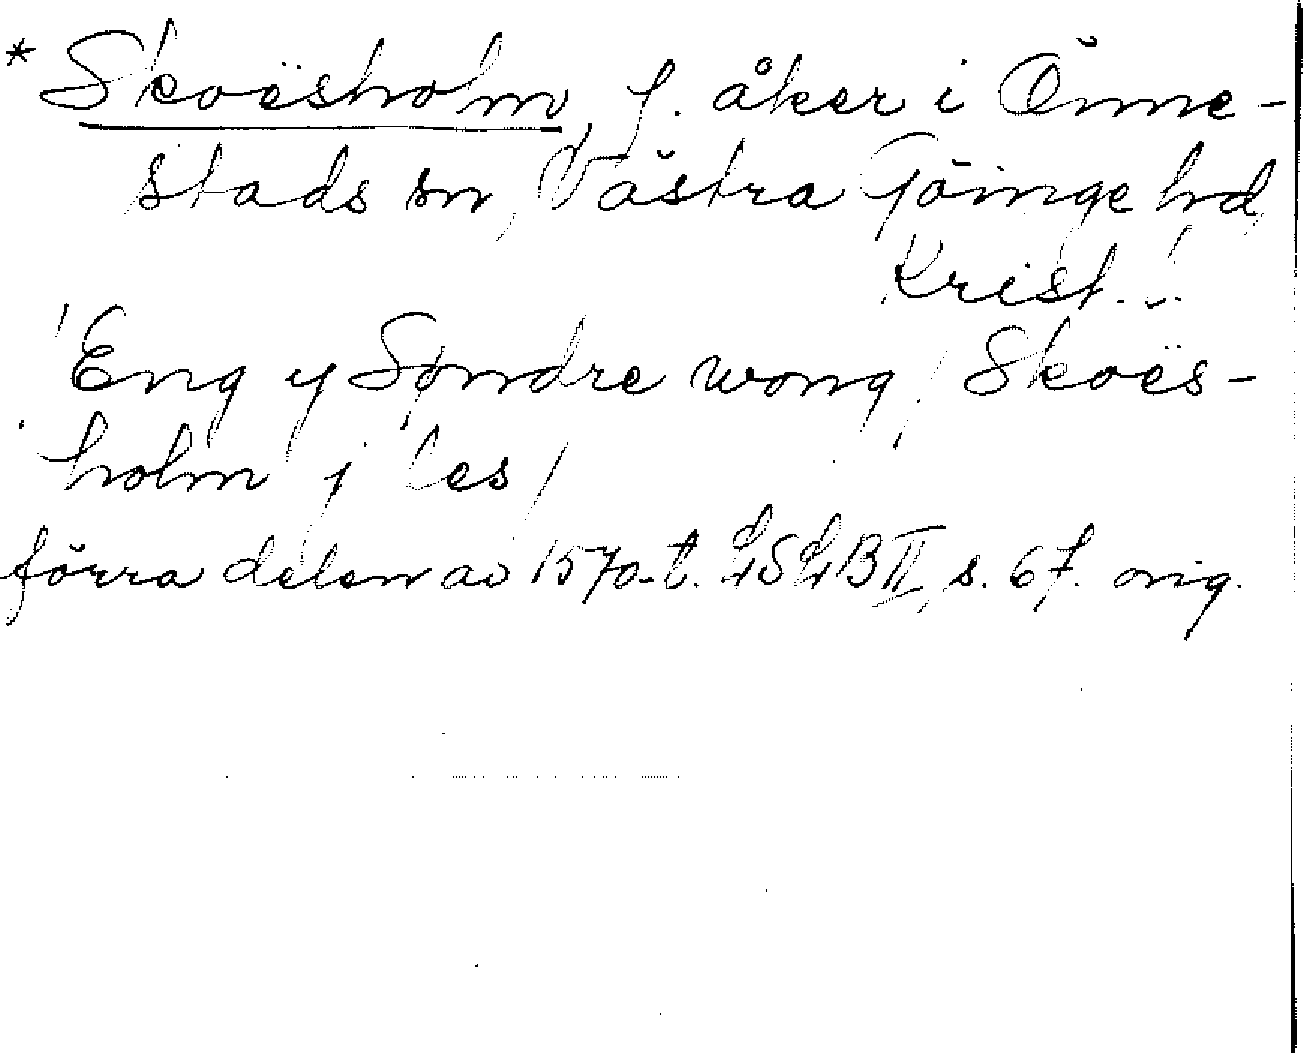 * Skoësholm, f. åker i Önne-
stads sn, Västra Göinge hd,
Krist. l.
Eng y Søndre wong / Skoës-
holm j les /
förra delen av 1570-t. LSLB II, s. 67. orig.